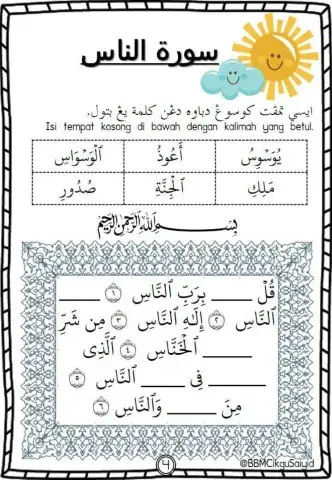 سورة الناس
ايسي تمڤت كوسوڠ دباوه دڠن كلمة يڠ بتول.
Isi tempat kosong di bawah dengan kalimah yang betul.
يُوَسْوِسُ أَعُوذُ ٱلْوَسْوَاسِ
مَلِكِ ٱلْجِنَّةِ صُدُورِ
بِسْمِ ٱللَّهِ ٱلرَّحْمَٰنِ ٱلرَّحِيمِ
قُلْ ____ بِرَبِّ ٱلنَّاسِ ١ ____
ٱلنَّاسِ ٢ إِلَٰهِ ٱلنَّاسِ ٣ مِن شَرِّ
____ ٱلْخَنَّاسِ ٤ ٱلَّذِى
____ فِى ____ ٱلنَّاسِ ٥
مِنَ ____ وَٱلنَّاسِ ٦
4
@BBMCikguSaiyid